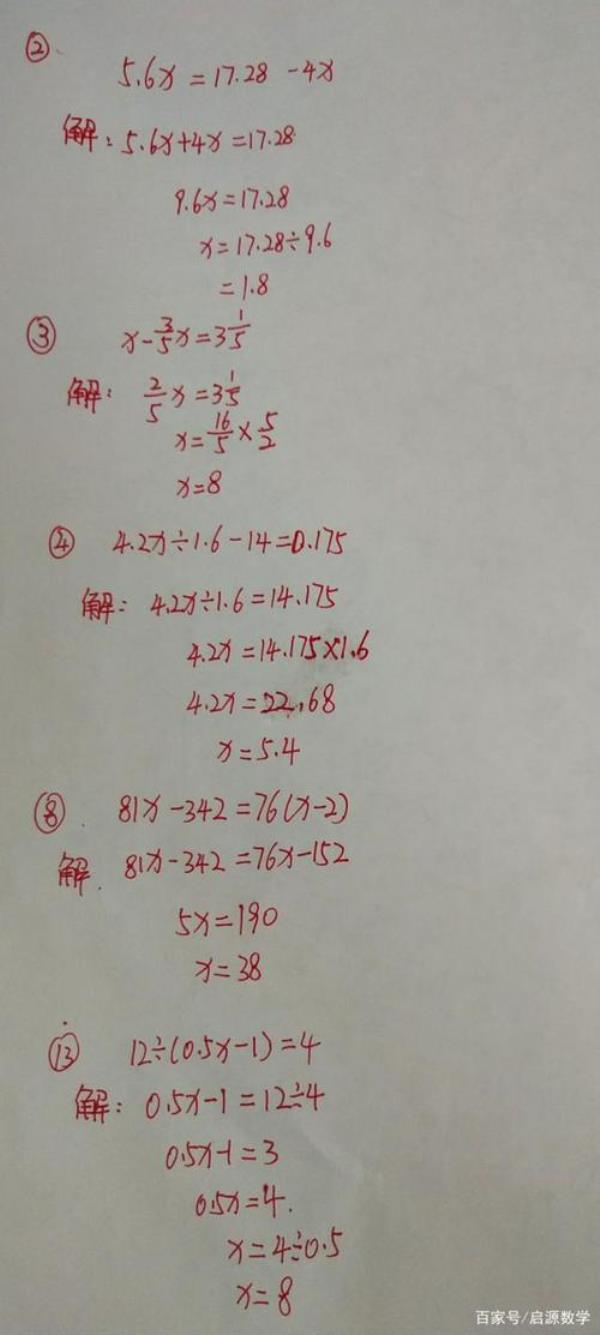 ②
5.6x=17.28-4x
解:5.6x+4x=17.28
9.6x=17.28
x=17.28÷9.6
=1.8
③ x-3/5x=3 1/5
解: 2/5x=3 1/5
x=16/5×5/2
x=8
④ 4.2x÷1.6-14=0.175
解: 4.2x÷1.6=14.175
4.2x=14.175×1.6
4.2x=22.68
x=5.4
⑧. 81x-342=76(x-2)
解. 81x-342=76x-152
5x=190
x=38
⑬ 12÷(0.5x-1)=4
解: 0.5x-1=12÷4
0.5x-1=3
0.5x=4.
x=4÷0.5
x=8
百家号/启源数学